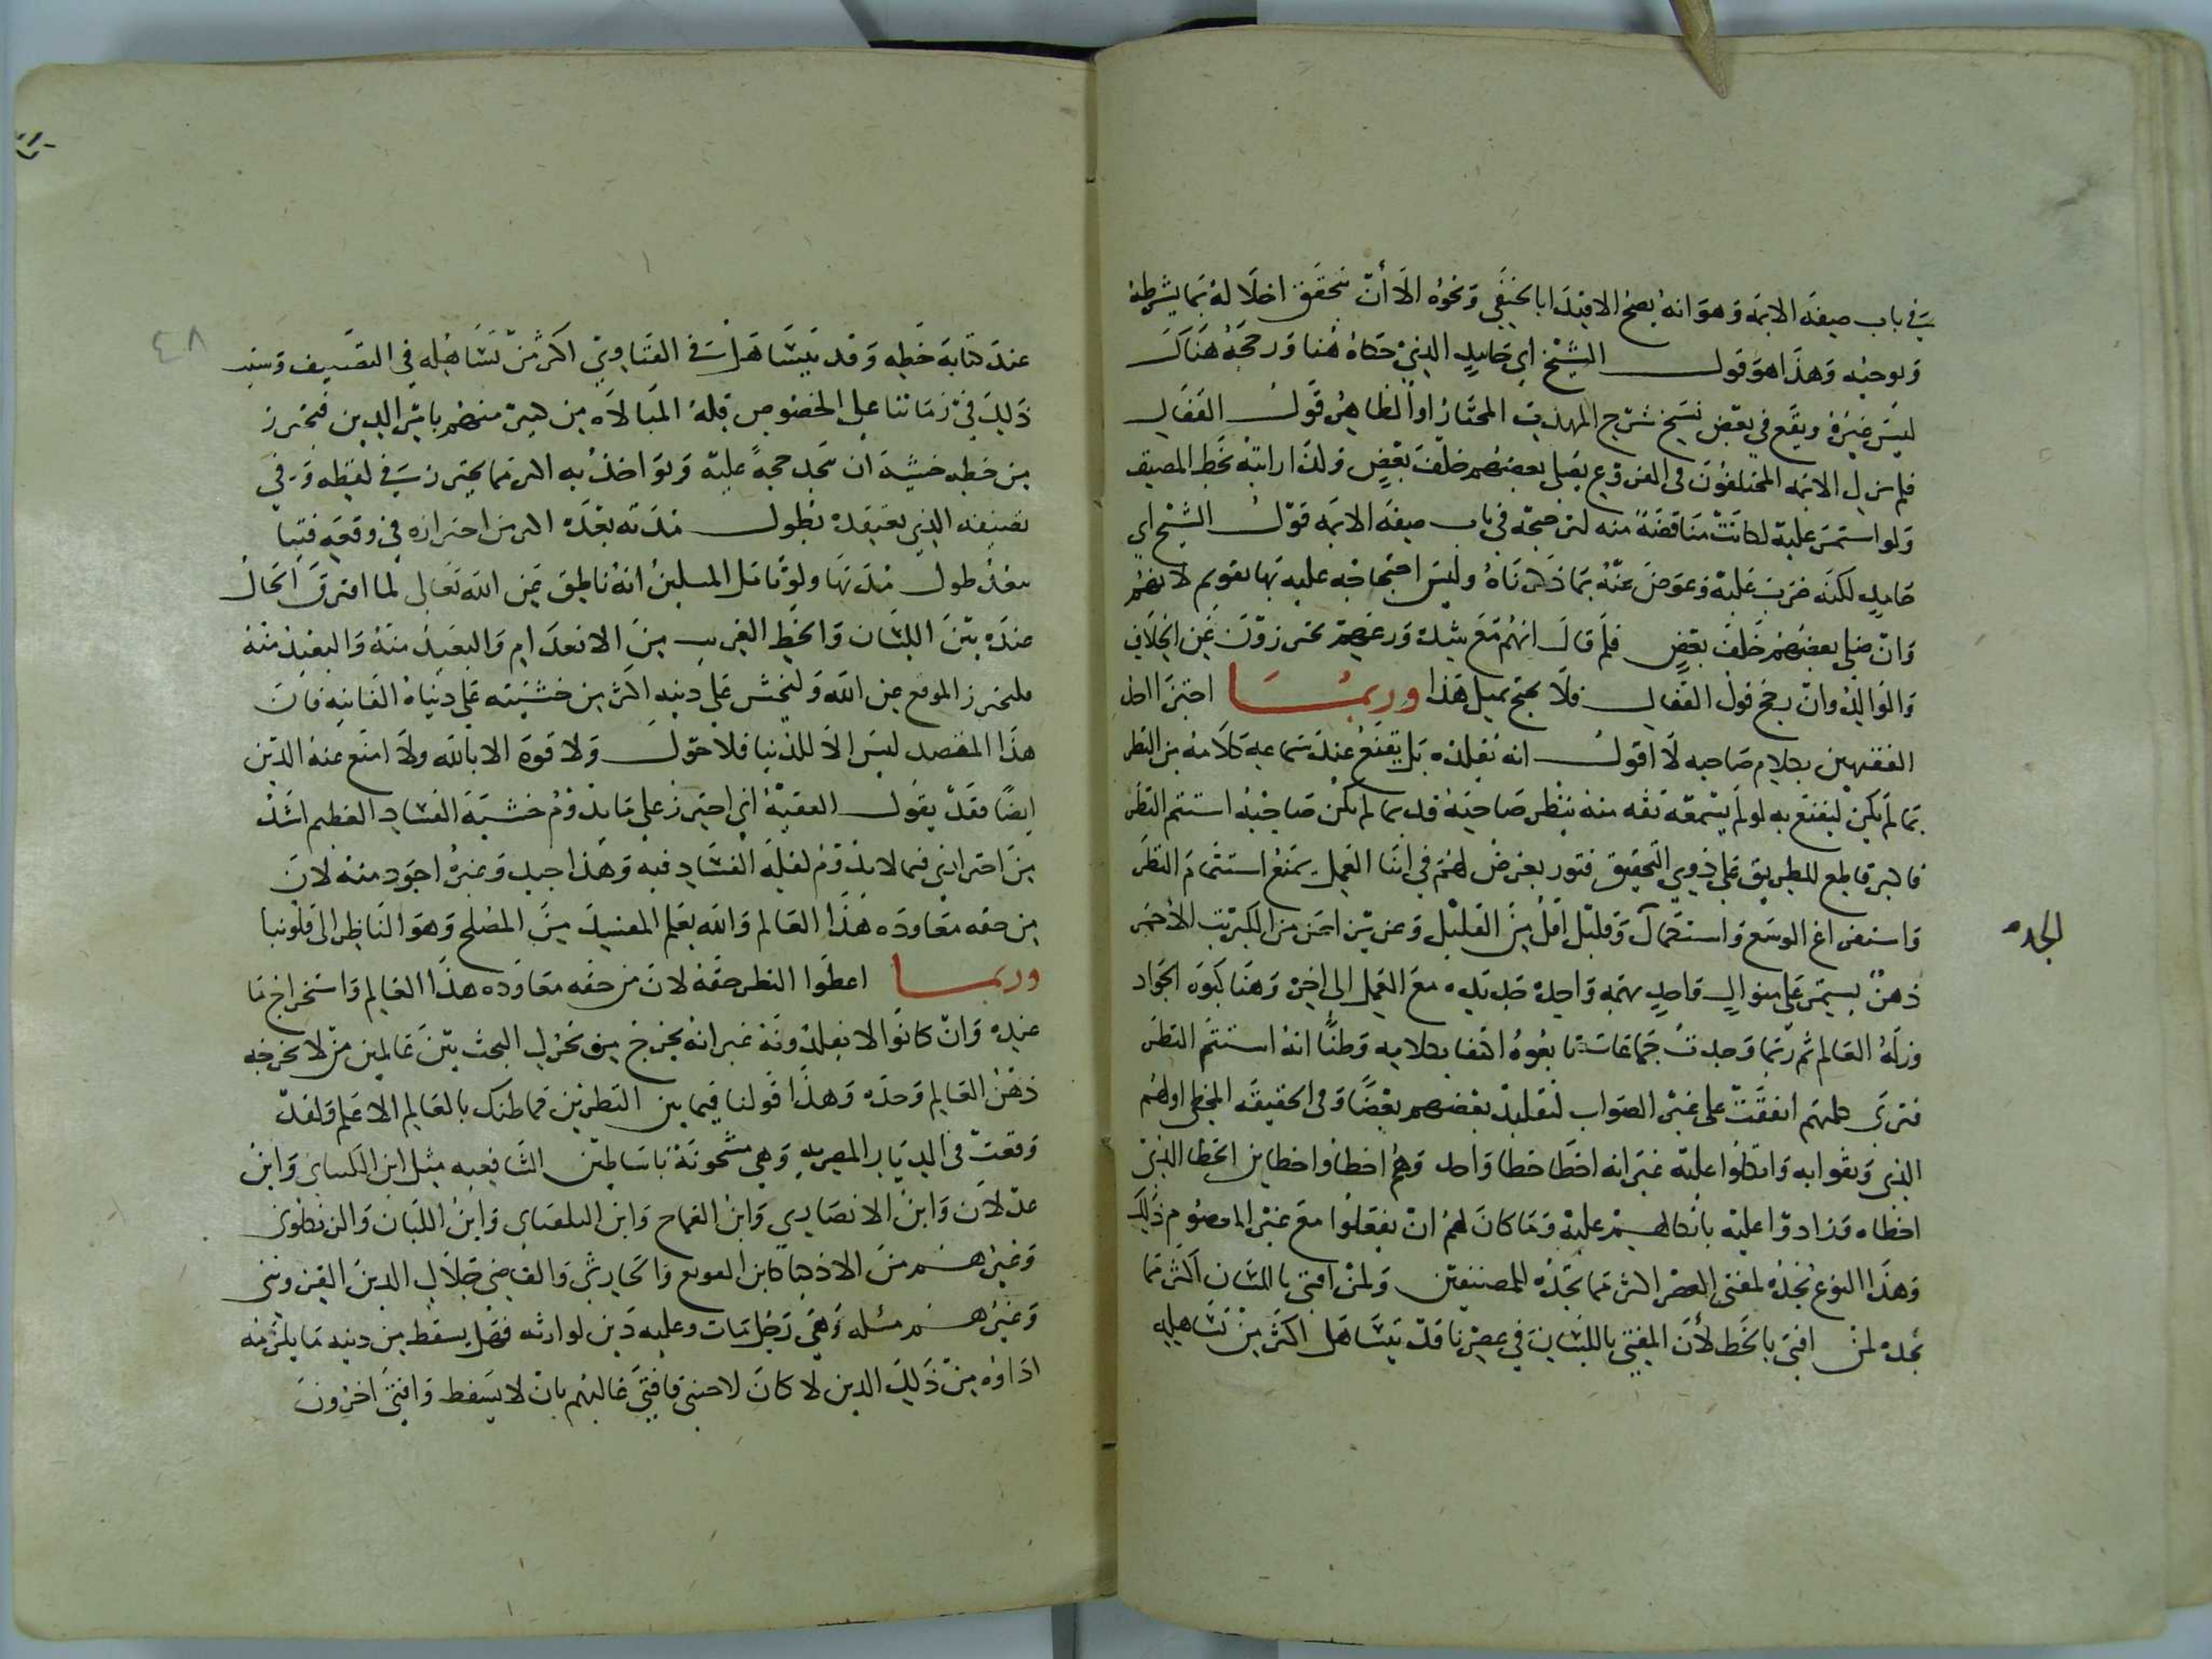 في باب صفة الائمة وهو انه يصح الاقتدا بالحنفي ونحوه الا أن نتحقق اخلاله بما يشرطه
ويوجبه وهذا هو قول الشيخ ابي حامد الذي حكاه هنا ورجحه هناك
ليس غيره ويقع في بعض نسخ شرح المهذب المختار او الظاهر قول القفال
فلم يزل الائمة المختلفون في الفروع يصلي بعضهم خلف بعض وكذا رايته بخط المصنف
ولو استمر عليه لكانت مناقضة منه لترجيحه في باب صفة الائمة قول الشيخ ابي
حامد لكنه ضرب عليه وعوض عنه بما ذكرناه وليس احتجاجه عليه بها بقويم لانهم
وان صلى بعضهم خلف بعض فلم قال انهم مع شدة ورعهم يحترزون عن الخلاف
والوالد وان رجح قول القفال فلا يحتج بمثل هذا وربما اجتزا احد
الفقيهين بكلام صاحبه لا اقول انه يقلده بل يقنع عند سماعه كلامه من النظر
بما لم يكن ليقنع به لو لم يسمعه ثقه منه بنظر صاحبه قد بما لم يكن صاحبه استتم النظر
فاكبر قاطع للطريق على ذوي التحقيق فتور يعرض لهم في اثنا العمل يمنع استتمام النظر
واستفراغ الوسع واستكمال وقليل اقل من القليل وعزيز اعز من الكبريت الاحمر
الجده
ذهن يستمر على منوال واحد بهمة واحدة جديدة مع العمل الى اخره وهنا كبوة الجواد
وزلة العالم ثم ربما وجدت جماعات تابعوه اكتفا بكلامه وظنا انه استتم النظر
فترى كلمتهم اتفقت على غير الصواب لتقليد بعضهم بعضا وفي الحقيقة المخطي اولهم
الذي وثقوا به واتكلوا عليه غير انه اخطا خطا واحد وهم اخطاوا خطاين الخطا الذي
اخطاه وزادوا عليه باتكالهم عليه وما كان لهم ان يفعلوا مع غير المعصوم ذلك
وهذا النوع نجده لمفتي العصر اكثر مما نجده للمصنفين ولمن افتى باللسان اكثر مما
نجده لمن افتى بالخط لأن المفتي باللسان في عصرنا قد يتساهل اكثر من تساهله
٤٨
عند كتابة خطه وقد يتساهل في الفتاوي اكثر من تساهله في التصنيف وسبب
ذلك في زماننا على الخصوص قلة المبالاه من كثير منهم بامر الدين فيحترز
من خطه خشية ان نجد حجة عليه وبواخذ به اكثر مما يحترز في لفظه وفي
تصنيفه الذي يعتقده بطول مدته بعده اكثر من احترازه في وقعة فتيا
بعد طول مدتها ولو تامل المسكين انه ناطق عن الله تعالى لما افترق الحال
عنده بين اللسان والخط القريب من الانعدام والبعيد منه والبعيد منه
فليحترز الموقع عن الله وليخش على دينه اكثر من خشيته على دنياه الفانيه فان
هذا المقصد ليس الا للدنيا فلا حول ولا قوة الا بالله ولا امنع عنه الدين
ايضا فقد يقول الفقيه اني احترز على ما يدوم خشية الفساد العظيم اشد
من احترازي فيما لا يدوم لقلة الفساد فيه وهذا جيد وغيره اجود منه لان
من حقه معاودة هذا العالم والله يعلم المفسد من المصلح وهو الناظر الى قلوبنا
وربما اعطوا النظر حقه لان من حقه معاودة هذا العالم واستخراج ما
عنده وان كانوا لا يقلدونه غير انه يخرج من تحرك البحث بين عالمين ما لا يخرجه
ذهن العالم وحده وهذا قولنا فيما بين النظرين فما ظنك بالعالم الاعلم ولقد
وقعت في الديار المصرية وهي مشحونة باساطين الشافعيه مثل ابن الكتاني وابن
عدلان وابن الانصاري وابن القماح وابن البلفيائي وابن اللبان والزنكلوني
وغيرهم من الاذكيا كابن القوبع والحارثي والقاضي جلال الدين القزويني
وغيرهم مسئله وهي رجل مات وعليه دين لوارثه فهل يسقط من دينه ما يلزمه
اداؤه من ذلك الدين لو كان لاجنبي فافتى غالبهم بان لا يسقط وافتى اخرون